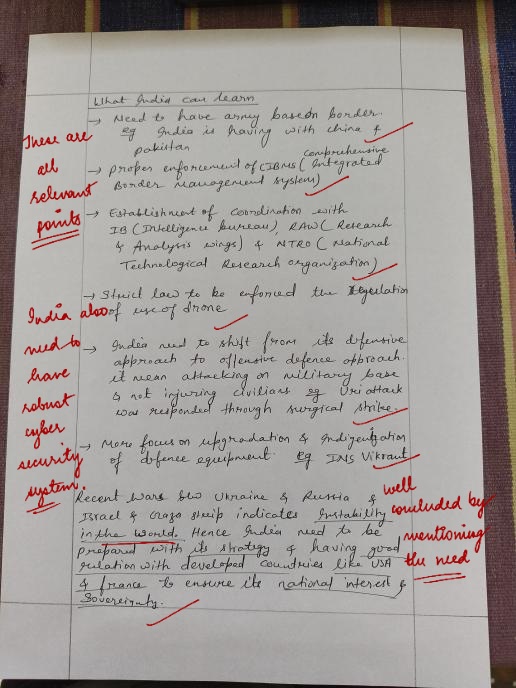 What India can learn
→ Need to have army based on border.
eg India is having with china &
pakistan
→ proper enforcement of CIBMS (comprehensive Integrated
Border Management system)
→ Establishment of coordination with
IB (Intelligence bureau), RAW (Research
& Analysis wings) & NTRO (National
Technological Research organization)
→ Strict law to be enforced the regulation
of use of drone
→ India need to shift from its defensive
approach to offensive defence approach.
it mean attacking on military base
& not injuring civilians eg Uri attack
was responded through surgical strike.
→ More focus on upgradation & Indigenization
of defence equipment eg INS Vikrant
Recent Wars b/w Ukraine & Russia &
Israel & Gaza strip indicates Instability
in the world. Hence India need to be
prepared with its strategy & having good
relation with developed countries like USA
& france to ensure its national interest &
Sovereignty.
These are
all
relevant
points
India also
need to
have
robust
cyber
security
system.
well
concluded by
mentioning
the need